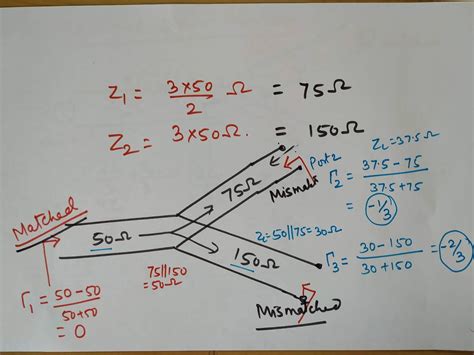 Z1 = 3×50/2 Ω = 75Ω
Z2 = 3×50Ω. = 150Ω
Matched
50Ω
75Ω
150Ω
75||150
=50Ω
Γ1 = 50-50/50+50
= 0
Port2
Mismatch
ZL=37.5Ω
Γ2 = 37.5-75/37.5+75
= -1/3
ZL=50||75=30Ω
Γ3 = 30-150/30+150 = -2/3
Mismatched